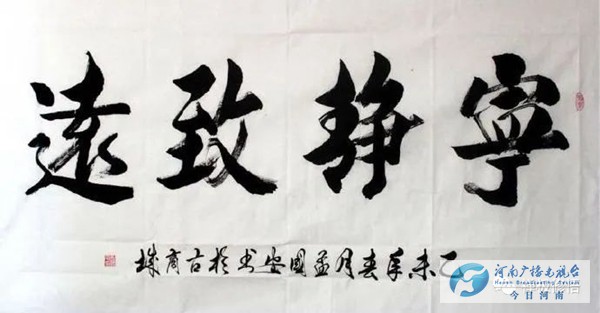 寧静致遠
乙未年春月孟國安书於古商城
河南广播电视台
今日河南